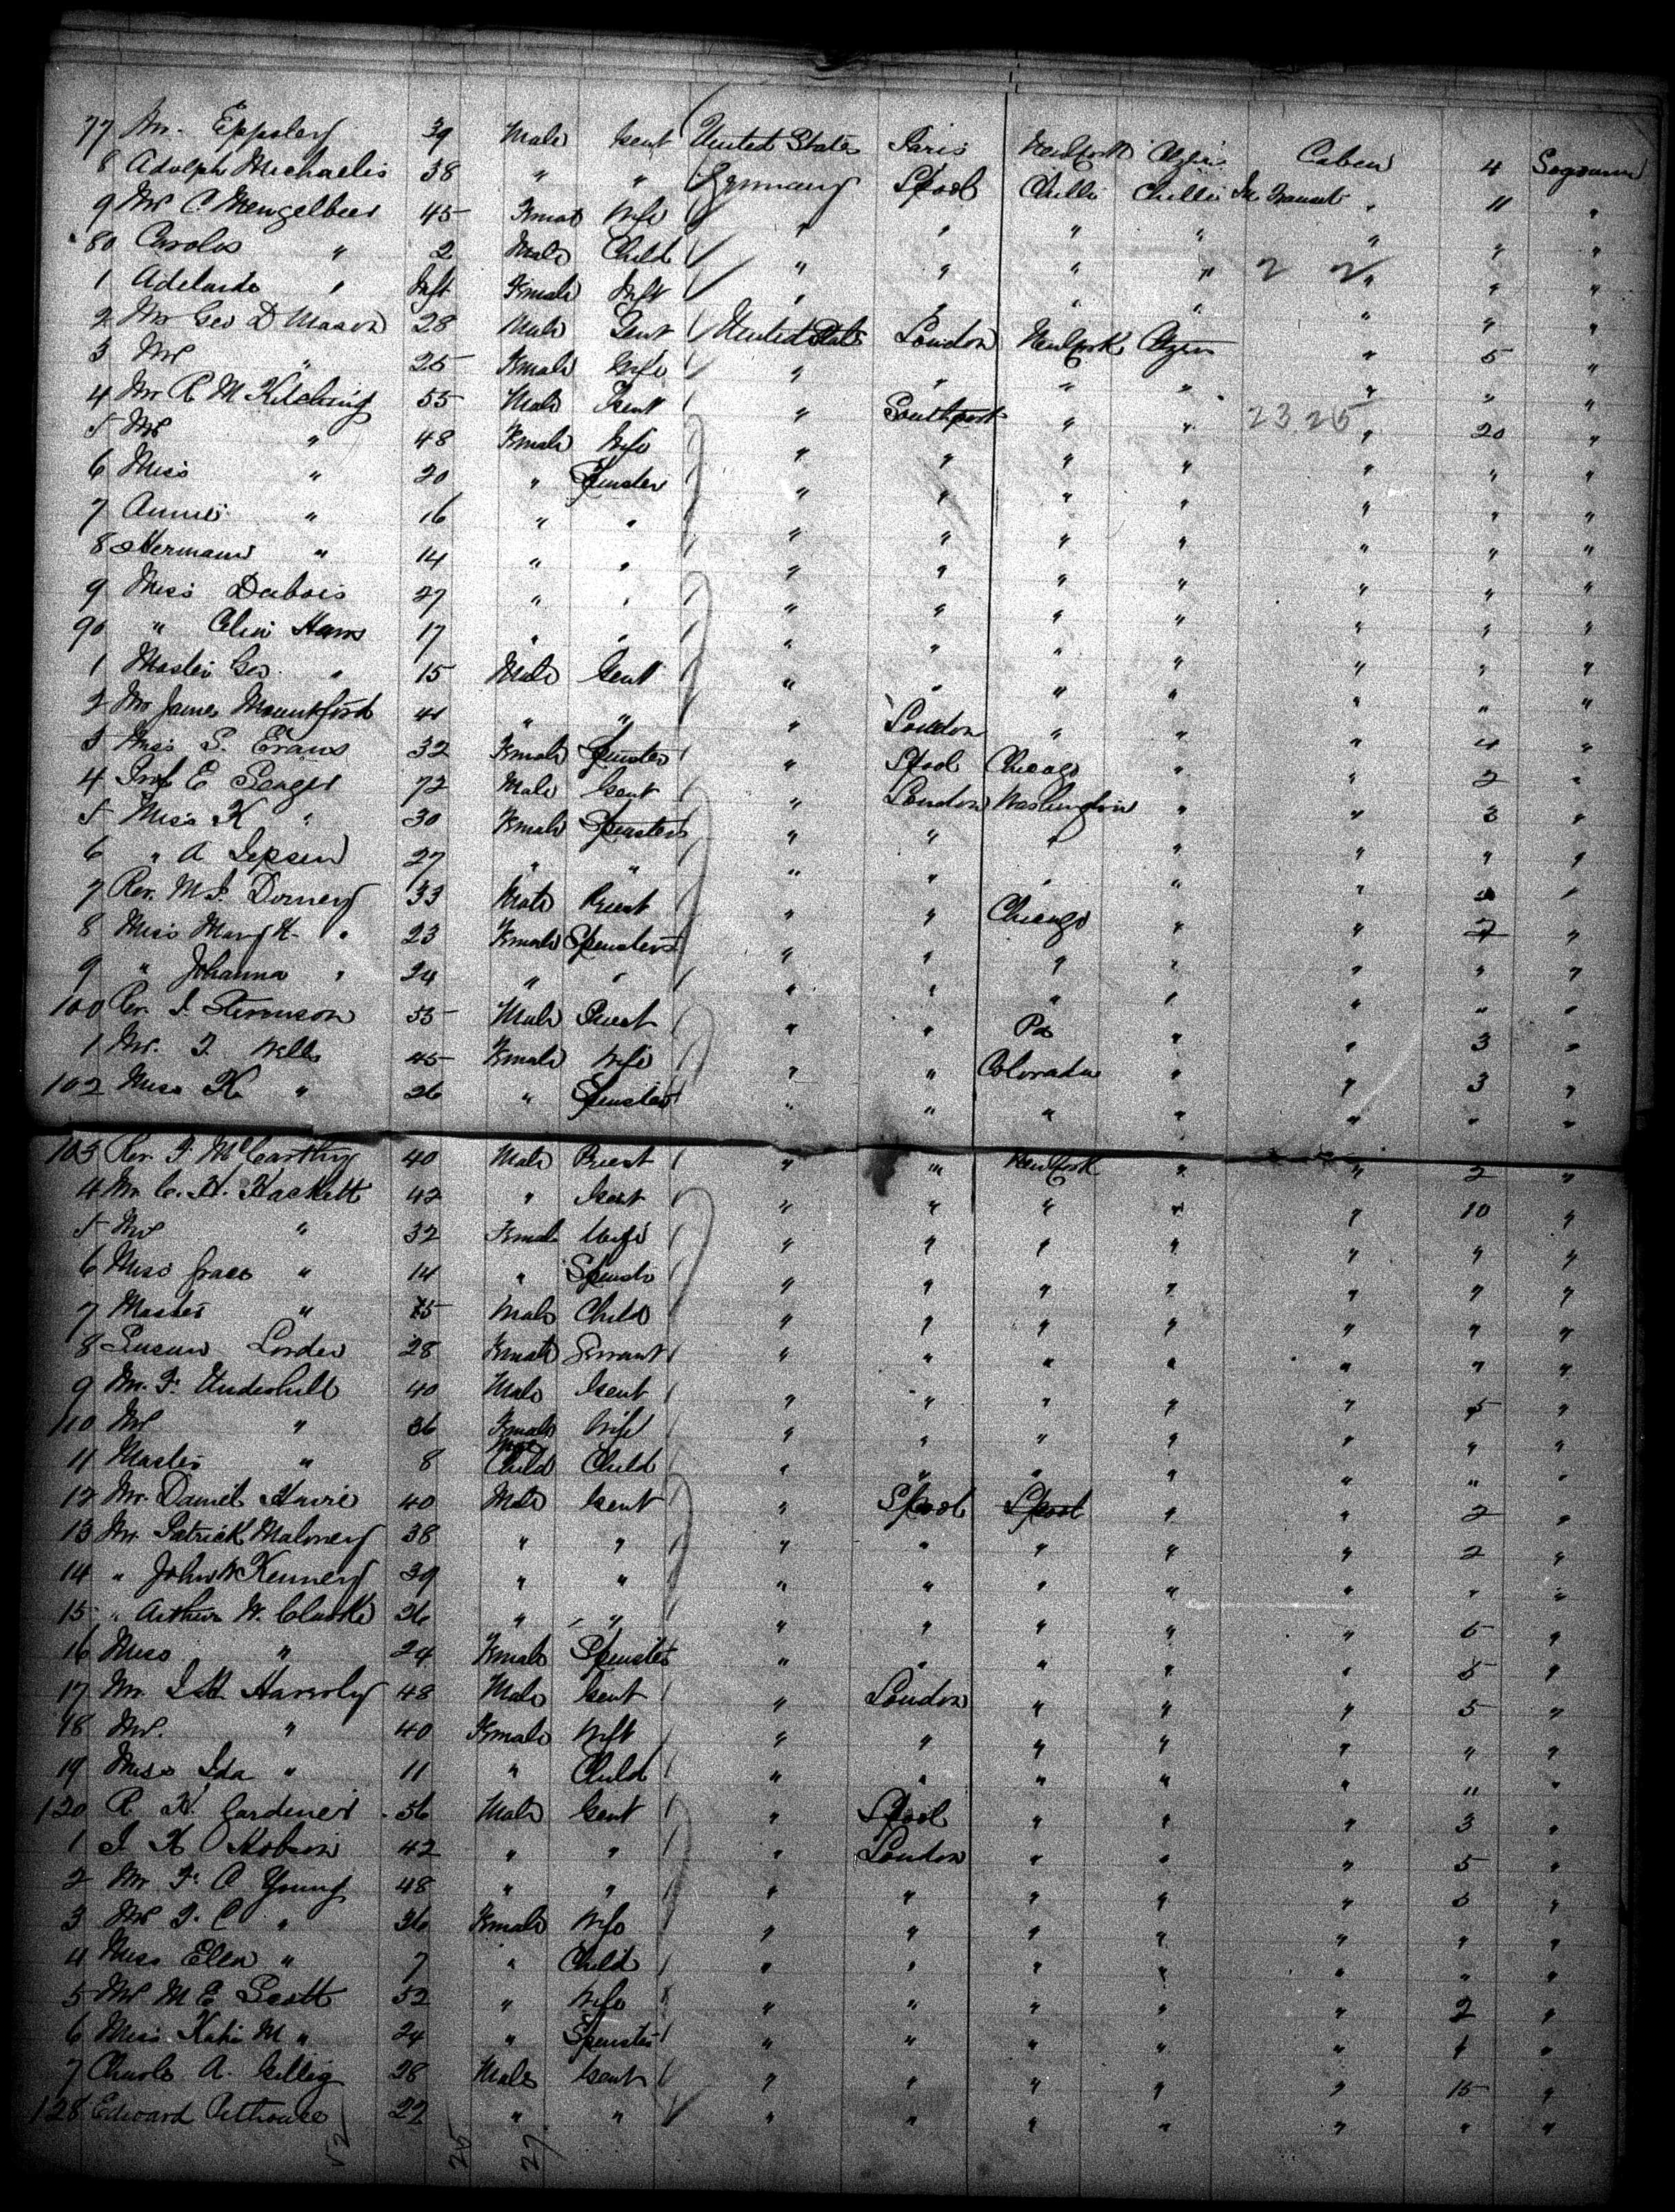 77 Mr. Eppsley 39 Male Gent United States Paris New York Citizen Cabin 4 Sojourn
8 Adolph Michaelis 38 " " Germany L'pool Chilli Chilli In Transit " 11 "
9 Mrs C. Mengelbeer 45 Female Wife " " " " " " "
80 Carolos " 2 Male Child " " " " " " "
1 Adelaide " Inft Female Inft " " " " " " "
2 Mr Geo D Mason 28 Male Gent United States London New York Citizen " 5 "
3 Mrs " 25 Female Wife " " " " " " "
4 Mr R M Kitching 55 Male Gent " Southport " " " 20 "
2325
5 Mrs " 48 Female Wife " " " " " " "
6 Miss " 20 " Spinster " " " " " " "
7 Annie " 16 " " " " " " " " "
8 Hermann " 14 " " " " " " " " "
9 Miss Dubois 27 " " " " " " " " "
90 " Celin Hans 17 " " " " " " " " "
1 Master Geo. " 15 Male Gent " " " " " " "
2 Mr James Mountford 41 " " " London " " " 4 "
3 Miss S. Evans 32 Female Spinster " L'pool Chicago " " 2 "
4 Prof E Seager 72 Male Gent " London Washington " " 3 "
5 Miss K " 30 Female Spinster " " " " " " "
6 " A Jepsen 27 " " " " " " " " "
7 Rev. M. J. Dorney 33 Male Priest " " Chicago " " 2 "
8 Miss Mary H. " 23 Female Spinster " " " " " " "
9 " Johanna " 24 " " " " " " " " "
100 Rev. J. Stevenson 55 Male Priest " " Pa " " 3 "
1 Mrs. J. Wells 45 Female Wife " " Colorado " " 3 "
102 Miss K " 26 " Spinster " " " " " " "
103 Rev. J. McCarthy 40 Male Priest " " New York " " 2 "
4 Mr C. H. Hackett 42 " Gent " " " " " 10 "
5 Mrs " 32 Female Wife " " " " " " "
6 Miss Grace " 14 " Spinster " " " " " " "
7 Master " 15 Male Child " " " " " " "
8 Susan Lorder 28 Female Servant " " " " " " "
9 Mr. F. Underhill 40 Male Gent " " " " " 5 "
110 Mrs " 36 Female Wife " " " " " " "
11 Master " 8 Child Child " " " " " " "
12 Mr. Daniel Harris 40 Male Gent " L'pool L'pool " " 2 "
13 Mr. Patrick Maloney 38 " " " " " " " 2 "
14 " John W Kenney 39 " " " " " " " " "
15 " Arthur W. Clarke 26 " " " " " " " 5 "
16 Miss " 24 Female Spinster " " " " " 5 "
17 Mr. J. H. Haverly 48 Male Gent " London " " " 5 "
18 Mrs. " 40 Female Wife " " " " " " "
19 Miss Ida " 11 " Child " " " " " " "
120 R. H. Gardener 56 Male Gent " L'pool " " " 3 "
1 J H Hobson 42 " " " London " " " 5 "
2 Mr. F. C Young 48 " " " " " " " 3 "
3 Mrs F. C " 36 Female Wife " " " " " " "
4 Miss Ellen " 7 " Child " " " " " " "
5 Mrs M E Scott 52 " Wife " " " " " 2 "
6 Miss Katie M " 24 " Spinster " " " " " 1 "
7 Charles A. Gillig 28 Male Gent " " " " " 15 "
128 Edward Pethouse 22 " " " " " " " " "
52 25 27